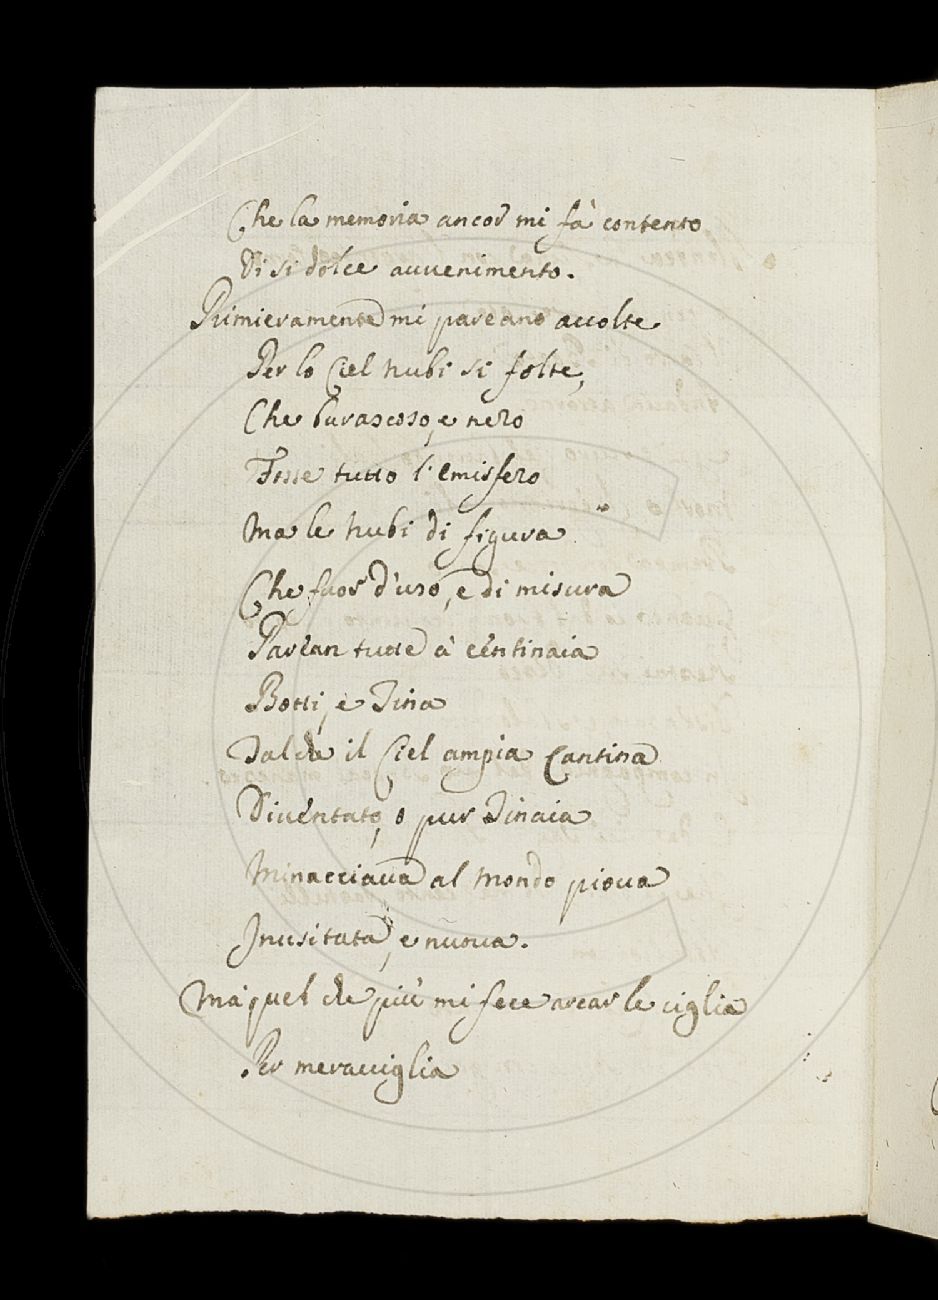 Che la memoria ancor mi fà contento
Di si dolce avvenimento.
Primieramente mi pareano accolte
Per lo Ciel nubi si folte,
Che burascoso, e nero
Fosse tutto l'emisfero
Ma le nubi di figura
Che fuor d'uso, e di misura
Parean tutte à centinaia
Botti, e Tina
Talche il Ciel ampia Cantina
Diventato, o pur Tinaia
Minacciava al mondo piova
Inusitata, e nuova.
Ma quel che più mi fece arcar le ciglia
Per meraviglia